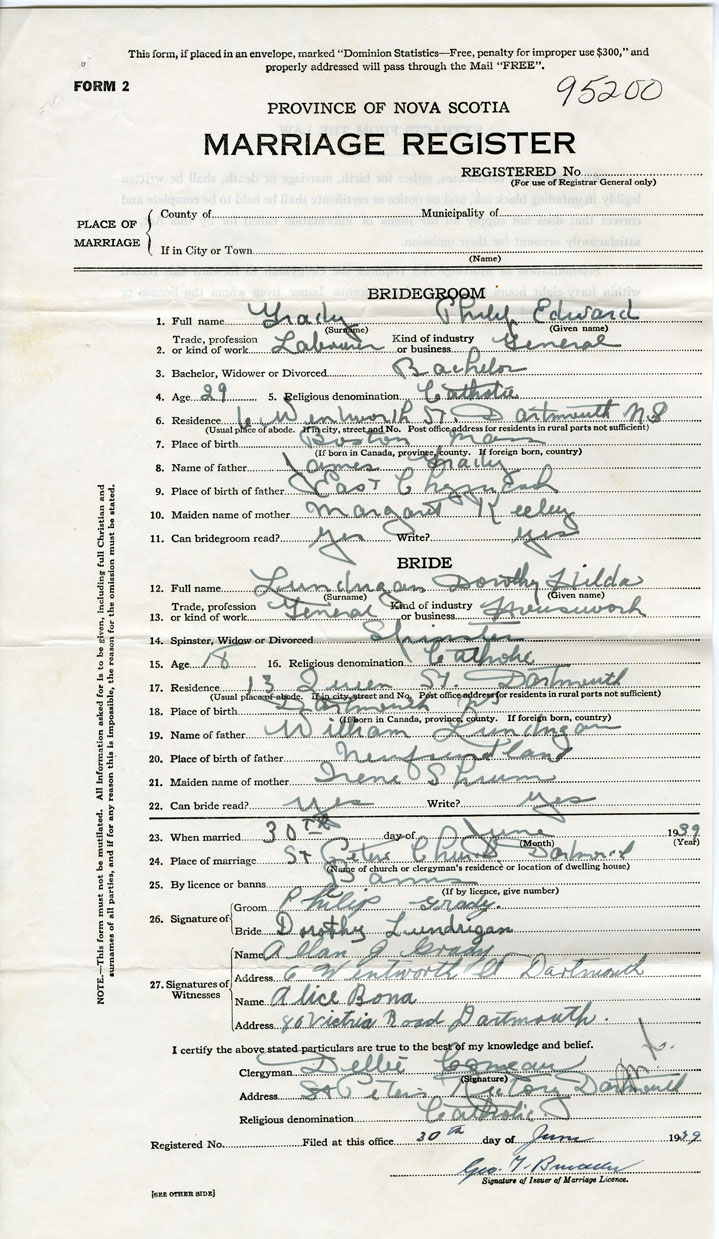 This form, if placed in an envelope, marked "Dominion Statistics—Free, penalty for improper use $300," and
properly addressed will pass through the Mail "FREE".
FORM 2
95200
PROVINCE OF NOVA SCOTIA
MARRIAGE REGISTER
REGISTERED No.
(For use of Registrar General only)
PLACE OF MARRIAGE
County of Municipality of
If in City or Town
(Name)
BRIDEGROOM
1. Full name Grady Philip Edward
(Surname) (Given name)
2. Trade, profession or kind of work Labourer Kind of industry or business General
3. Bachelor, Widower or Divorced Bachelor
4. Age 29 5. Religious denomination Catholic
6. Residence 6 Wentworth St. Dartmouth N.S
(Usual place of abode. If in city, street and No. Post office address for residents in rural parts not sufficient)
7. Place of birth Boston Mass
(If born in Canada, province, county. If foreign born, country)
8. Name of father James Grady
9. Place of birth of father East Chezzetcook
10. Maiden name of mother Margaret Keeley
11. Can bridegroom read? Yes Write? Yes
BRIDE
12. Full name Lundrigan Dorothy Hilda
(Surname) (Given name)
13. Trade, profession or kind of work General Kind of industry or business Housework
14. Spinster, Widow or Divorced Spinster
15. Age 18 16. Religious denomination Catholic
17. Residence 13 Queen St. Dartmouth
(Usual place of abode. If in city, street and No. Post office address for residents in rural parts not sufficient)
18. Place of birth Dartmouth NS
(If born in Canada, province, county. If foreign born, country)
19. Name of father William Lundrigan
20. Place of birth of father Newfoundland
21. Maiden name of mother Irene
22. Can bride read? yes Write? yes
23. When married 30TH day of June 1939
(Month) (Year)
24. Place of marriage St Peters Church Dartmouth
(Name of church or clergyman's residence or location of dwelling house)
25. By licence or banns Banns
(If by licence, give number)
26. Signature of
Groom Philip Grady.
Bride Dorothy Lundrigan
27. Signatures of Witnesses
Name Allan J Grady
Address 6 Wentworth St Dartmouth
Name Alice Bond
Address 80 Victria Road Dartmouth.
I certify the above stated particulars are true to the best of my knowledge and belief.
Clergyman Comeau
(Signature)
Address St Peters Rectory Dartmouth
Religious denomination Catholic
Registered No. Filed at this office 30th day of June 1939
Geo. T.
Signature of Issuer of Marriage Licence.
[SEE OTHER SIDE]
NOTE.—This form must not be mutilated. All information asked for is to be given, including full Christian and
surnames of all parties, and if for any reason this is impossible, the reason for the omission must be stated.